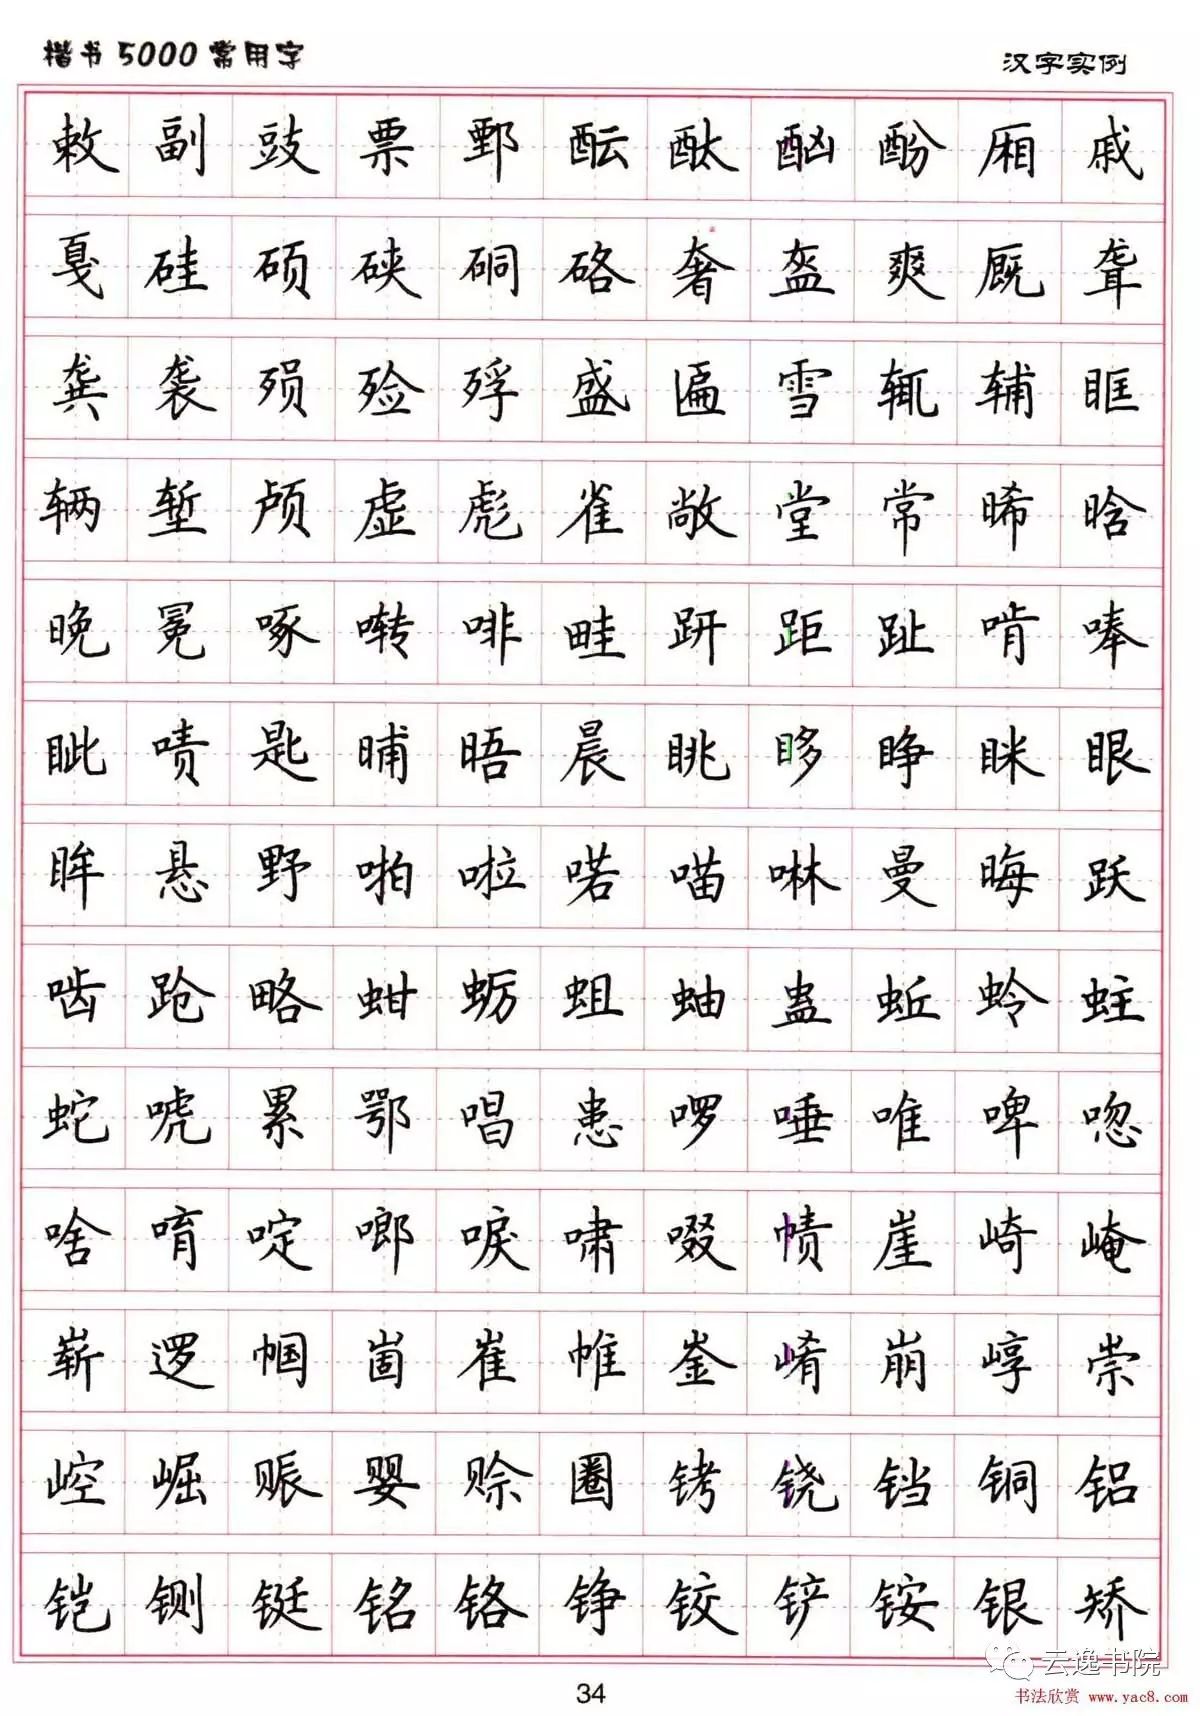 楷书5000常用字
汉字实例
敕副豉票鄄酝酞酗酚厢戚
戛硅硕硖硐硌奢盔爽厩聋
龚袭殒殓殍盛匾雪辄辅眶
辆堑颅虚彪雀敞堂常晞晗
晚冕啄啭啡畦趼距趾啃唪
眦啧匙晡晤晨眺眵睁眯眼
眸悬野啪啦喏喵啉曼晦跃
啮跄略蚶蛎蛆蚰蛊蚯蛉蛀
蛇唬累鄂唱患啰唾唯啤唿
啥唷啶啷唳啸啜帻崖崎崦
崭逻帼崮崔帷崟崤崩崞崇
崆崛赈婴赊圈铐铙铛铜铝
铠铡铤铭铬铮铰铲铵银矫
云逸书院
书法欣赏 www.yac8.com
34